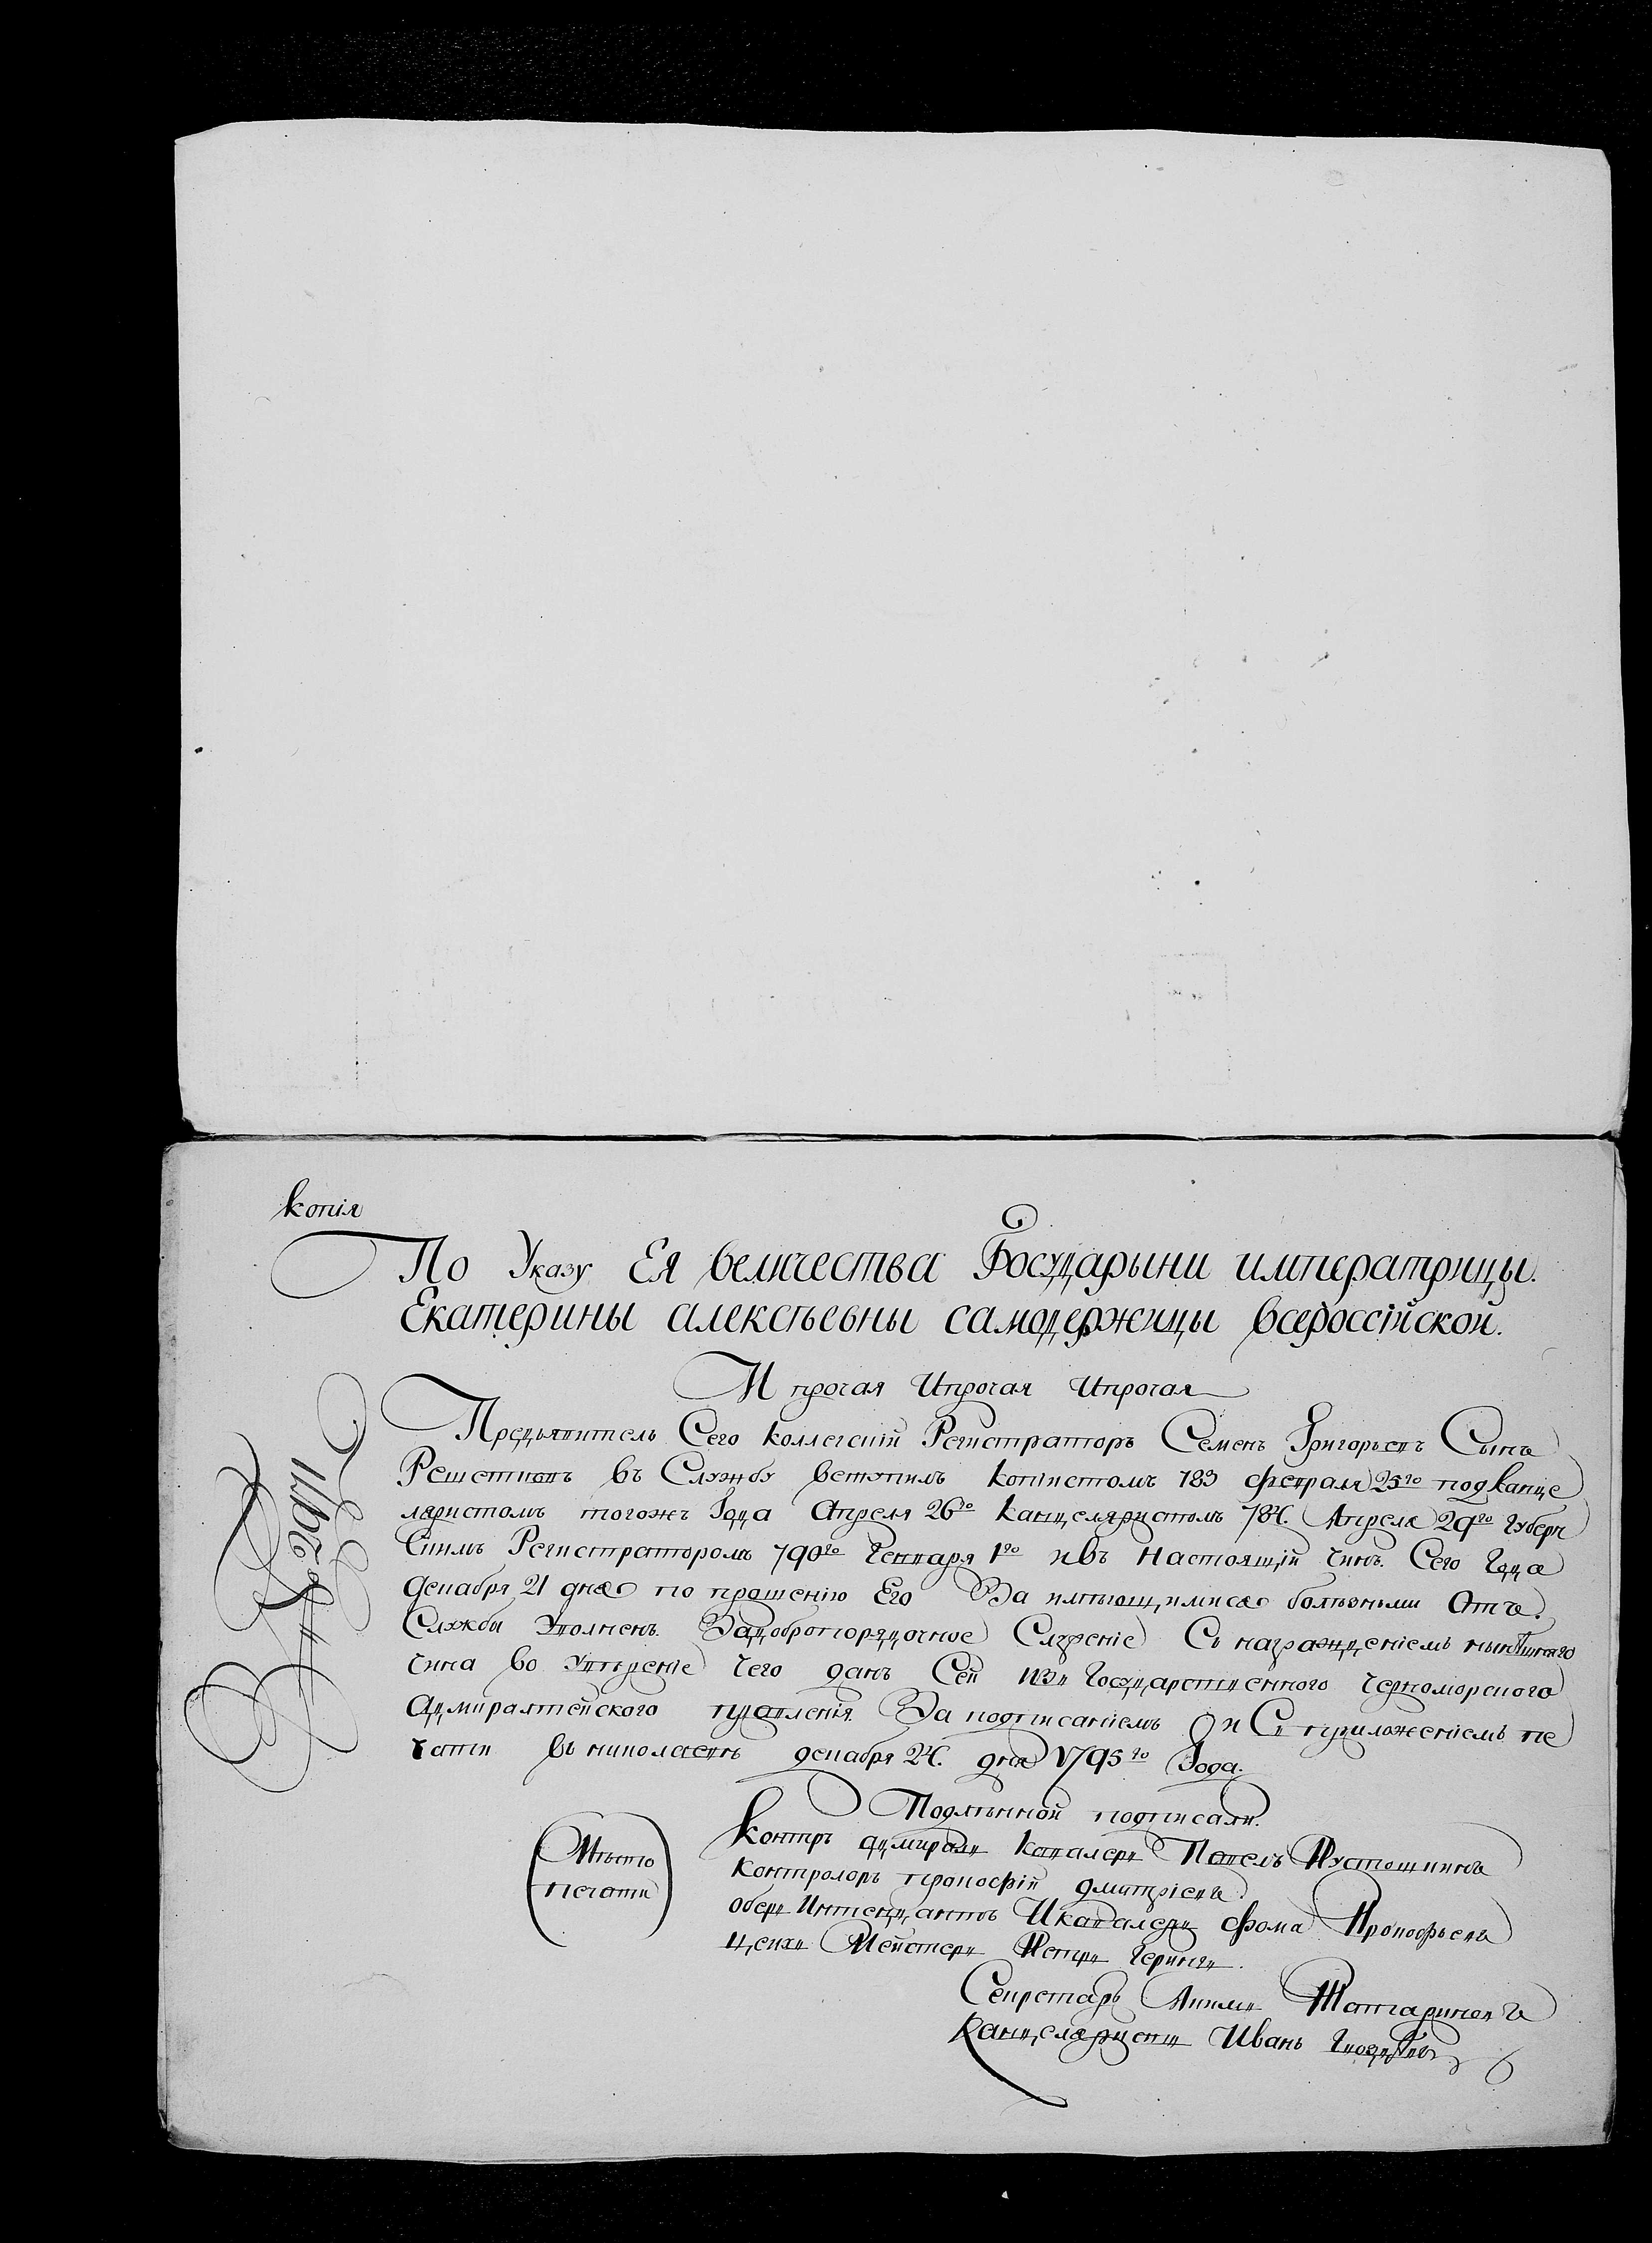 копія
По Указу Ея величества Государыни императрицы.
Екатерины алексѣевны самодержицы всероссійской.
И прочая Ипрочая Ипрочая
Предъявитель Сего коллегскій Регистраторъ Семенъ Григорьевъ Сынъ
Решетновъ въ Службу вступилъ копіистомъ 783 февраля 25го подканце
ляристомъ тогожъ Года Апреля 26го канцеляристомъ 784. Апреля 29го Губерн
скимъ Регистраторомъ 790го Генваря 1го ивъ Настоящій чинъ. Сего Года
декабря 21 дня по прошенію Его За имѣющимися болѣзньми Отъ.
Службы Уволненъ. Задобропорядочное Служеніе Съ награжденіемъ нынѣшняго
чина во Увѣреніе чего данъ Сей изъ Государственного черноморского
адмиралтейского правленія. За подписаніемъ и Съ приложеніемъ пе
чати въ николаевѣ декабря 24. дня 1795го Года.
Подлѣнной подписали.
Контръ адмиралъ Кавалеръ Павелъ Пустошкинъ
Контролоръ прокофій дмитріевъ.
оберъ Интендантъ Икавалеръ фома Прокофьевъ
цехъ Мейстеръ Петръ Герингъ.
Мѣсто
печати
Секретарь Акимъ
Канцеляристъ Иванъ Гвоздѣевъ
№ 2971